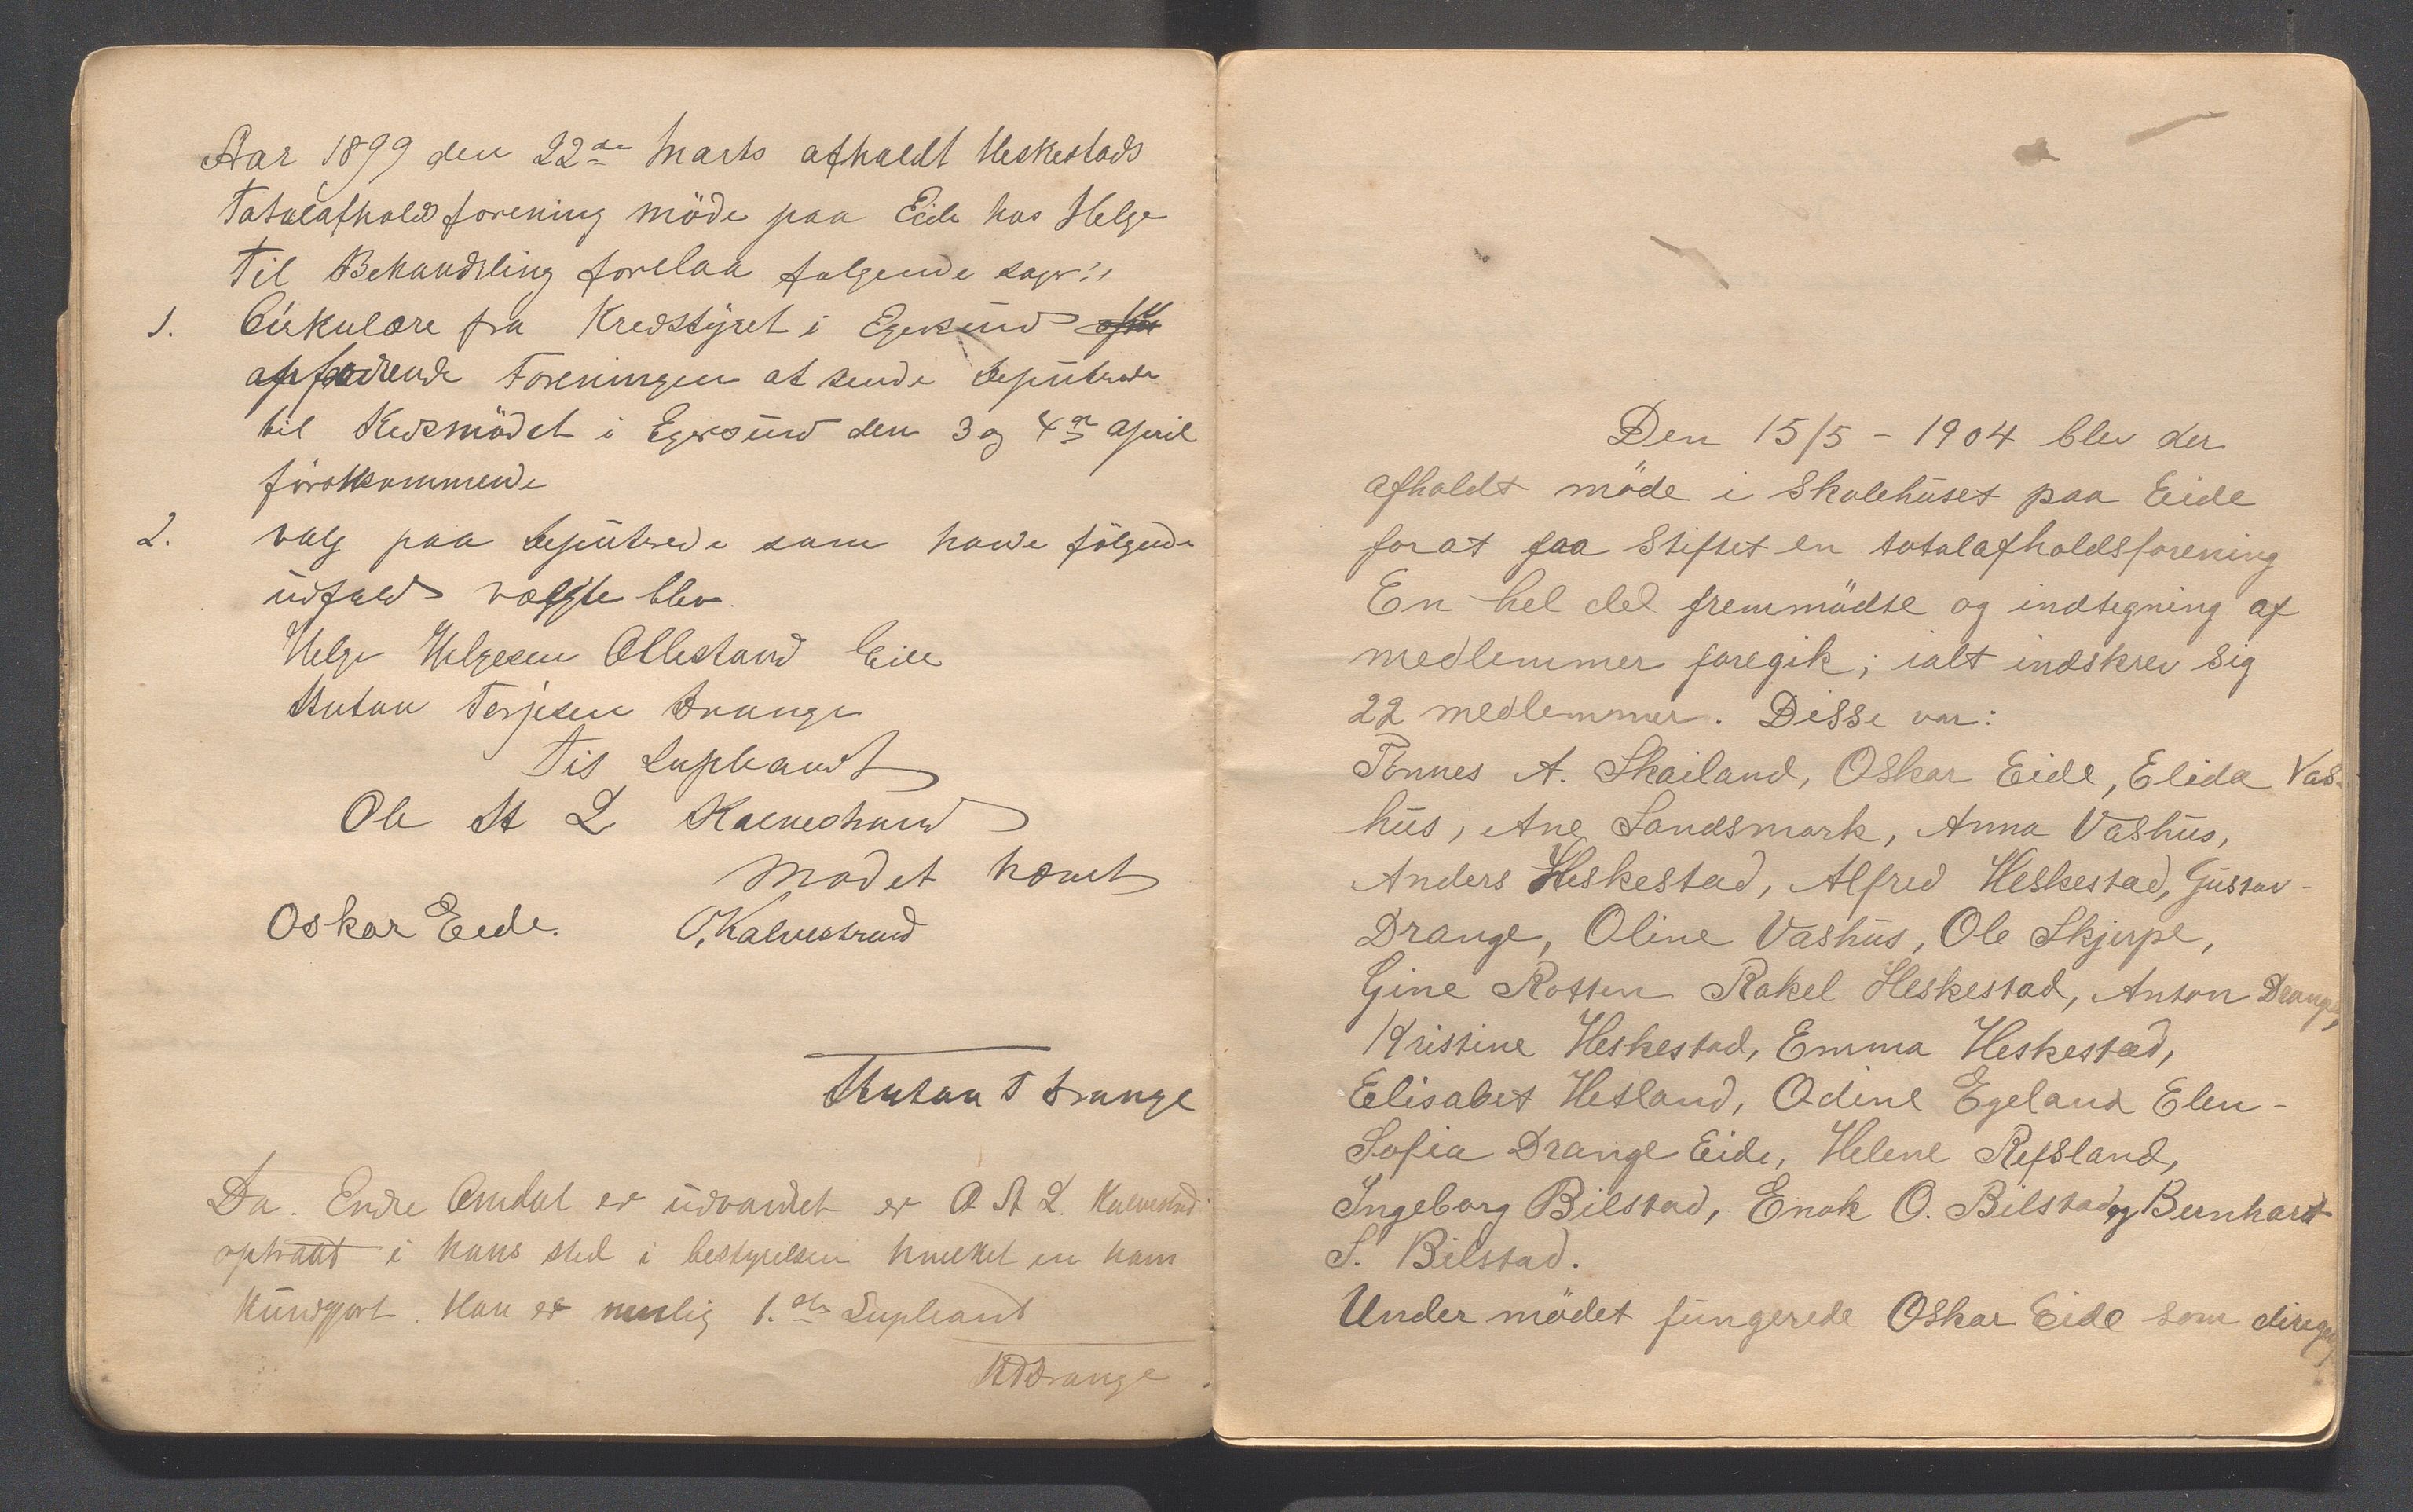 Aar 1899 den 22de Marts afholdt Heskestads
Totalafholdsforening möde paa Eide hos Helge
Til Behandling forelaa følgende sager:
1. Cirkulære fra Kredsstyret i Egersund
opfordrende Foreningen at sende deputerede
til Kredsmödet i Egersund den 3 og 4de April
förstkommende
2. valg paa deputerede som havde følgende
udfald valgte blev.
Helge Helgesen Ollestand Eide
Anton Terjesen Drange
Til Supleandt
Ole A L Kalvestrand
Mødet hævet
Oskar Eide. O. Kalvestrand
Anton T Drange
Da. Endre Omdal er udvandret er O A L. Kalvestrand
optraadt i hans sted i bestyrelsen hvilket en ham
kundgjort. Han er nemlig 1.ste Supleant
ATDrange
Den 15/5 - 1904 blev der
afholdt möde i Skolehuset paa Eide
for at faa Stiftet en totalafholdsforening
En hel del fremmödte og indtegning af
medlemmer foregik; ialt indskrev sig
22 medlemmer. Disse var:
Tönnes A. Skailand, Oskar Eide, Elida Vas-
hus, Ane Landsmark, Anna Vashus,
Anders Heskestad, Alfred Heskestad, Gustav -
Drange, Oline Vashus, Ole Skjerpe,
Gine Rotten Rakel Heskestad, Anton Drange,
Kristine Heskestad, Emma Heskestad,
Elisabet Hetland, Odine Egeland Elen -
Sofia Drange Eide, Helene Refsland,
Ingeborg Bilstad, Enok O. Bilstad og Bernhard
S. Bilstad.
Under mödet fungerede Oskar Eide som